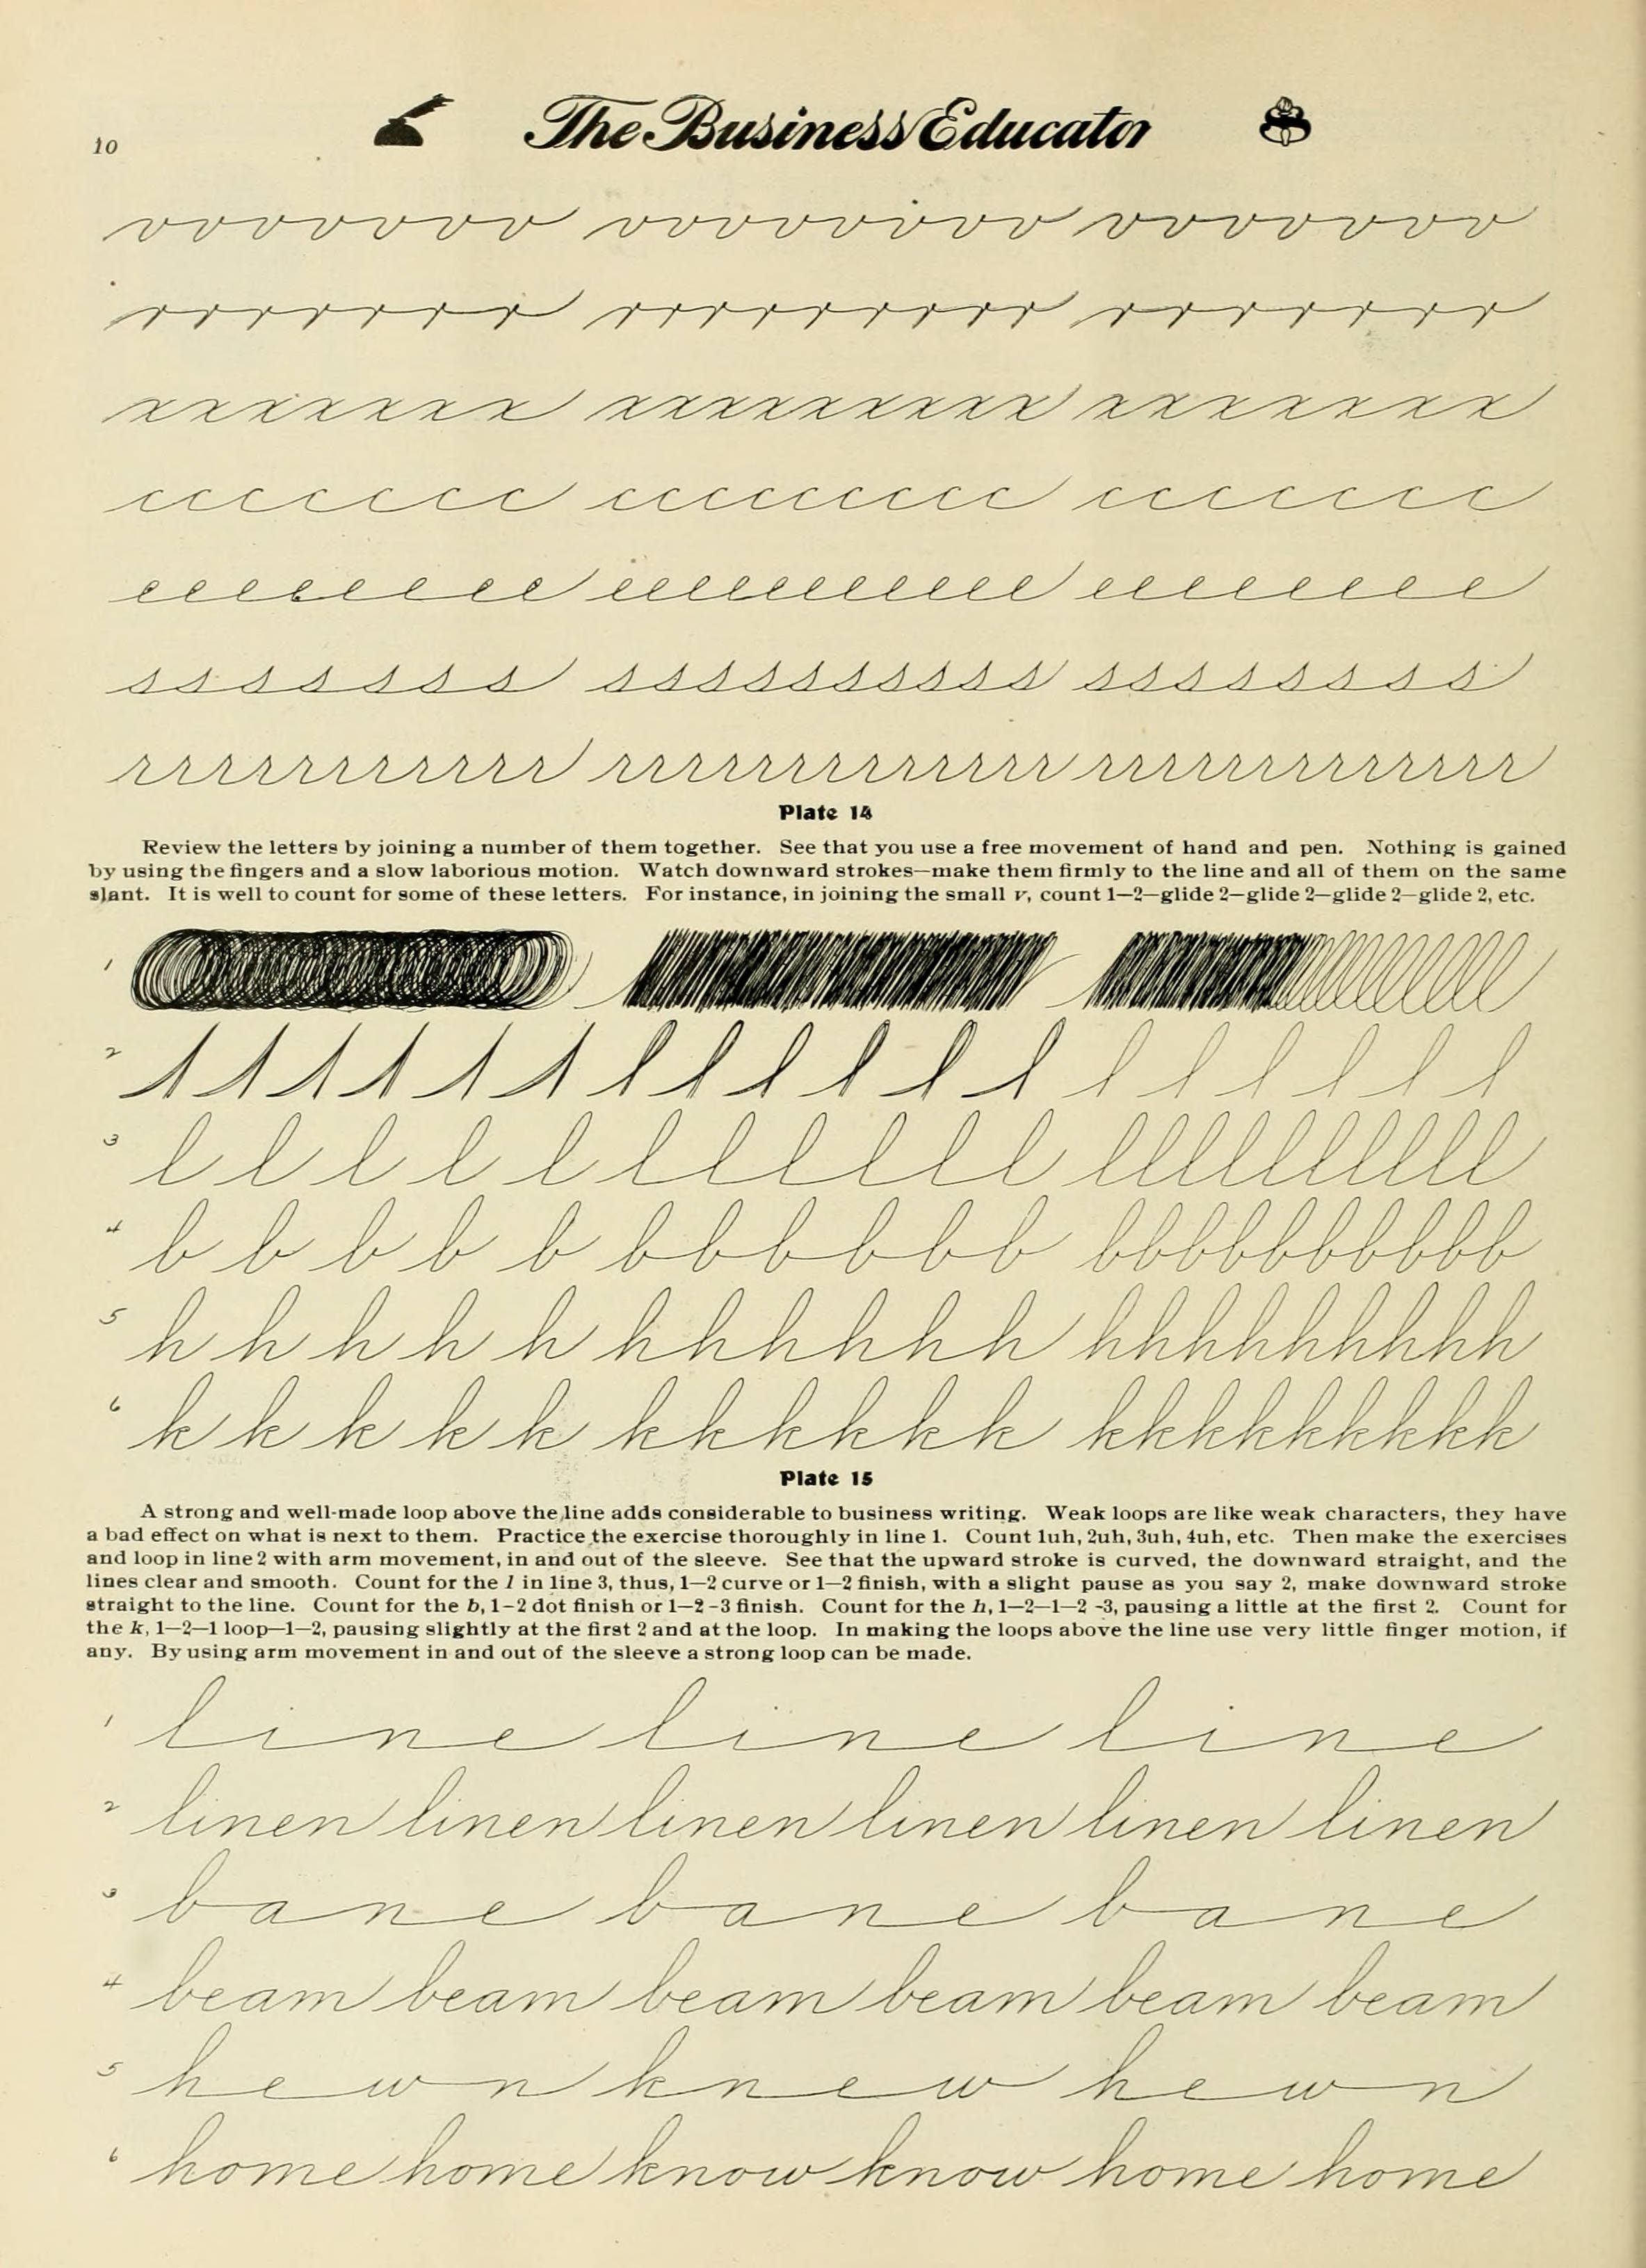 10 The Business Educator
vvvvvvv vvvvvvvv vvvvvvv
rrrrrrr rrrrrrrrr rrrrrrr
xxxxxxx xxxxxxxxx xxxxxxx
ccccccc ccccccccc ccccccc
eeeeeeee eeeeeeeeeee eeeeeeee
sssssss ssssssssss ssssssss
rrrrrrrrrrr rrrrrrrrrrrrr rrrrrrrrrrrrr
Plate 14
Review the letters by joining a number of them together. See that you use a free movement of hand and pen. Nothing is gained
by using the fingers and a slow laborious motion. Watch downward strokes—make them firmly to the line and all of them on the same
slant. It is well to count for some of these letters. For instance, in joining the small v, count 1—2—glide 2—glide 2—glide 2—glide 2, etc.
1
2 l l l l l l
3 l l l l l llllll llllllllll
4 b b b b b bbbbbb bbbbbbbbbb
5 h h h h h hhhhhh hhhhhhhhh
6 k k k k k kkkkkk kkkkkkkkk
Plate 15
A strong and well-made loop above the line adds considerable to business writing. Weak loops are like weak characters, they have
a bad effect on what is next to them. Practice the exercise thoroughly in line 1. Count 1uh, 2uh, 3uh, 4uh, etc. Then make the exercises
and loop in line 2 with arm movement, in and out of the sleeve. See that the upward stroke is curved, the downward straight, and the
lines clear and smooth. Count for the l in line 3, thus, 1—2 curve or 1—2 finish, with a slight pause as you say 2, make downward stroke
straight to the line. Count for the b, 1-2 dot finish or 1—2-3 finish. Count for the h, 1—2—1—2-3, pausing a little at the first 2. Count for
the k, 1—2—1 loop—1—2, pausing slightly at the first 2 and at the loop. In making the loops above the line use very little finger motion, if
any. By using arm movement in and out of the sleeve a strong loop can be made.
1 line line line
2 linen linen linen linen linen linen
3 bane bane bane
4 beam beam beam beam beam beam
5 hewn knew hewn
6 home home know know home home